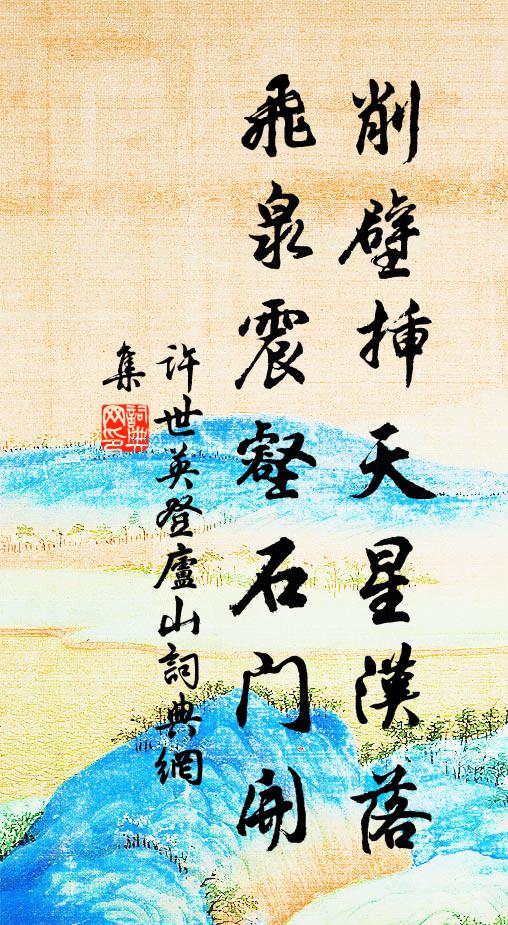 削壁插天星漢落
飛泉震壑石門開
許世英登廬山詞典網
集
詞典
网印